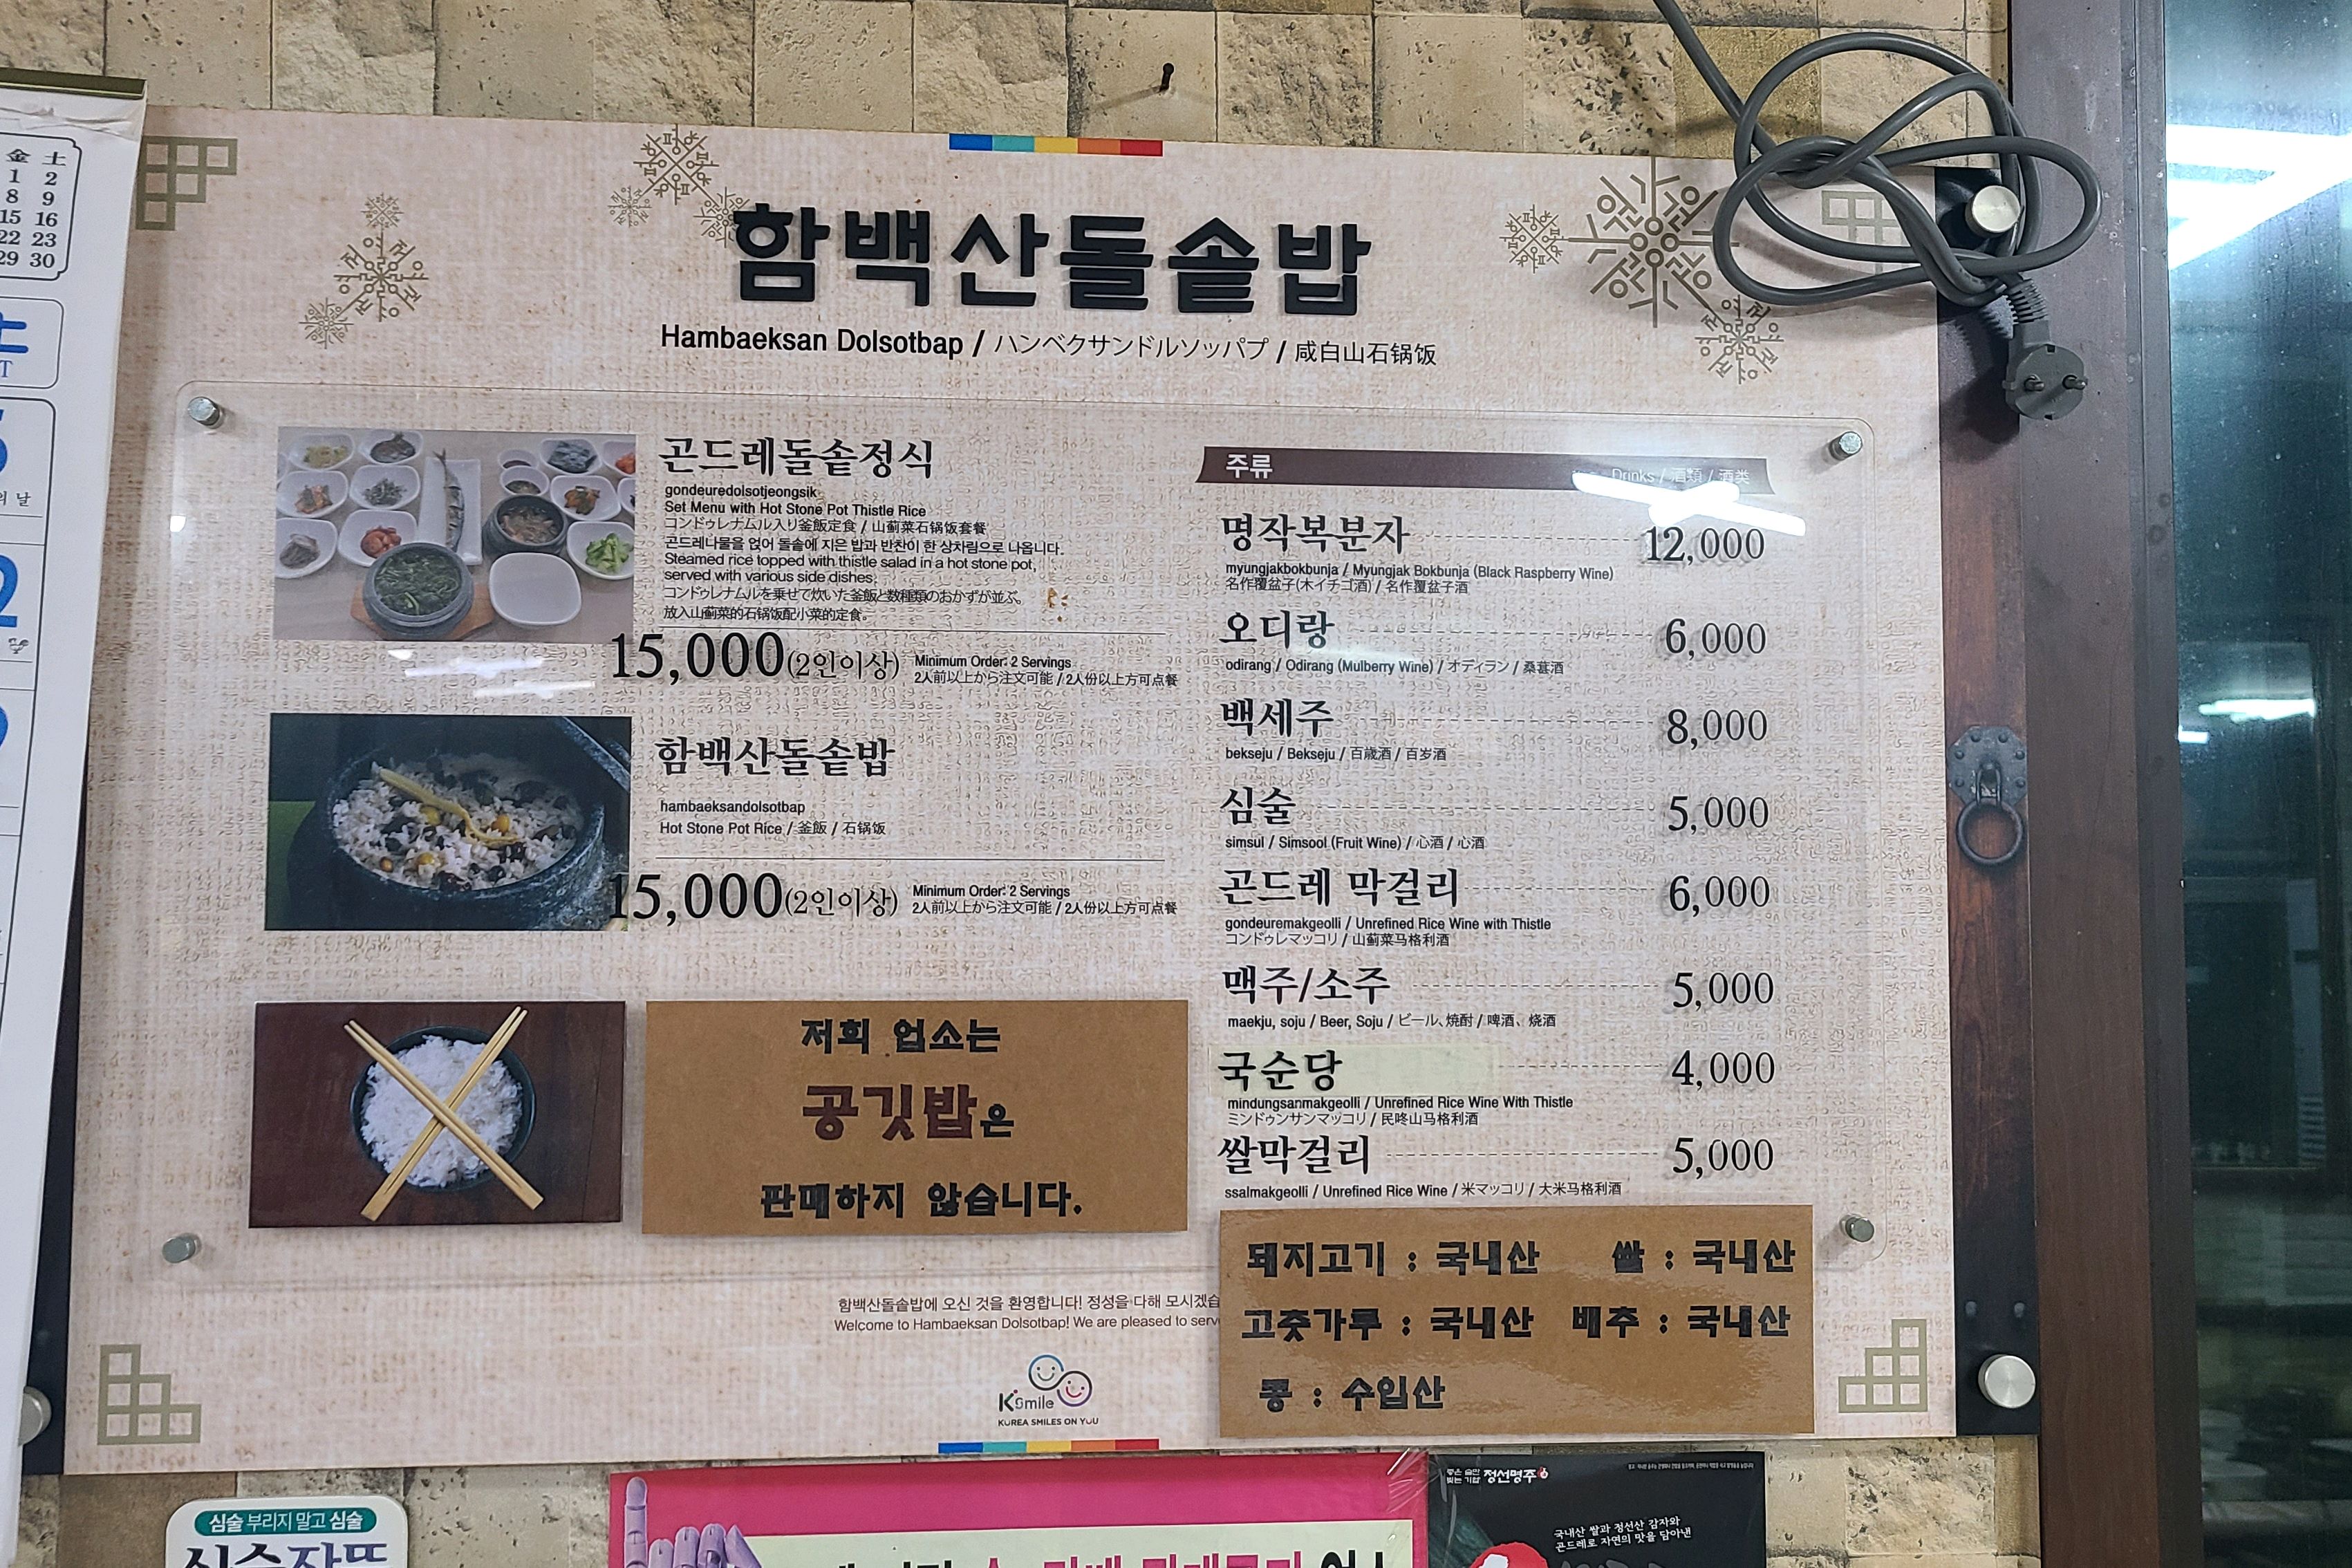 金 土
1 2
8 9
15 16
22 23
29 30
함백산돌솥밥
Hambaeksan Dolsotbap / ハンベクサンドルソッパプ / 咸白山石锅饭
곤드레돌솥정식
gondeuredolsotjeongsik
Set Menu with Hot Stone Pot Thistle Rice
コンドゥレナムル入り釜飯定食 / 山蓟菜石锅饭套餐
곤드레나물을 얹어 돌솥에 지은 밥과 반찬이 한 상차림으로 나옵니다.
Steamed rice topped with thistle salad in a hot stone pot,
served with various side dishes.
コンドゥレナムルを乗せて炊いた釜飯と数種類のおかずが並ぶ。
放入山蓟菜的石锅饭配小菜的定食。
15,000(2인이상) Minimum Order: 2 Servings
2人前以上から注文可能 / 2人份以上方可点餐
함백산돌솥밥
hambaeksandolsotbap
Hot Stone Pot Rice / 釜飯 / 石锅饭
15,000(2인이상) Minimum Order: 2 Servings
2人前以上から注文可能 / 2人份以上方可点餐
저희 업소는
공깃밥은
판매하지 않습니다.
주류 Drinks / 酒類 / 酒类
명작복분자 12,000
myungjakbokbunja / Myungjak Bokbunja (Black Raspberry Wine)
名作覆盆子(木イチゴ酒) / 名作覆盆子酒
오디랑 6,000
odirang / Odirang (Mulberry Wine) / オディラン / 桑葚酒
백세주 8,000
bekseju / Bekseju / 百歳酒 / 百岁酒
심술 5,000
simsul / Simsool (Fruit Wine) / 心酒 / 心酒
곤드레 막걸리 6,000
gondeuremakgeolli / Unrefined Rice Wine with Thistle
コンドゥレマッコリ / 山蓟菜马格利酒
맥주/소주 5,000
maekju, soju / Beer, Soju / ビール、焼酎 / 啤酒、烧酒
국순당 4,000
mindungsanmakgeolli / Unrefined Rice Wine With Thistle
ミンドゥンサンマッコリ / 民咚山马格利酒
쌀막걸리 5,000
ssalmakgeolli / Unrefined Rice Wine / 米マッコリ / 大米马格利酒
돼지고기 : 국내산 쌀 : 국내산
고춧가루 : 국내산 배추 : 국내산
콩 : 수입산
함백산돌솥밥에 오신 것을 환영합니다! 정성을 다해 모시겠습
Welcome to Hambaeksan Dolsotbap! We are pleased to serv
K Smile
KOREA SMILES ON YOU
심술 부리지 말고 심술
정선명주
국내산 쌀과 정선산 감자와
곤드레로 자연의 맛을 담아낸